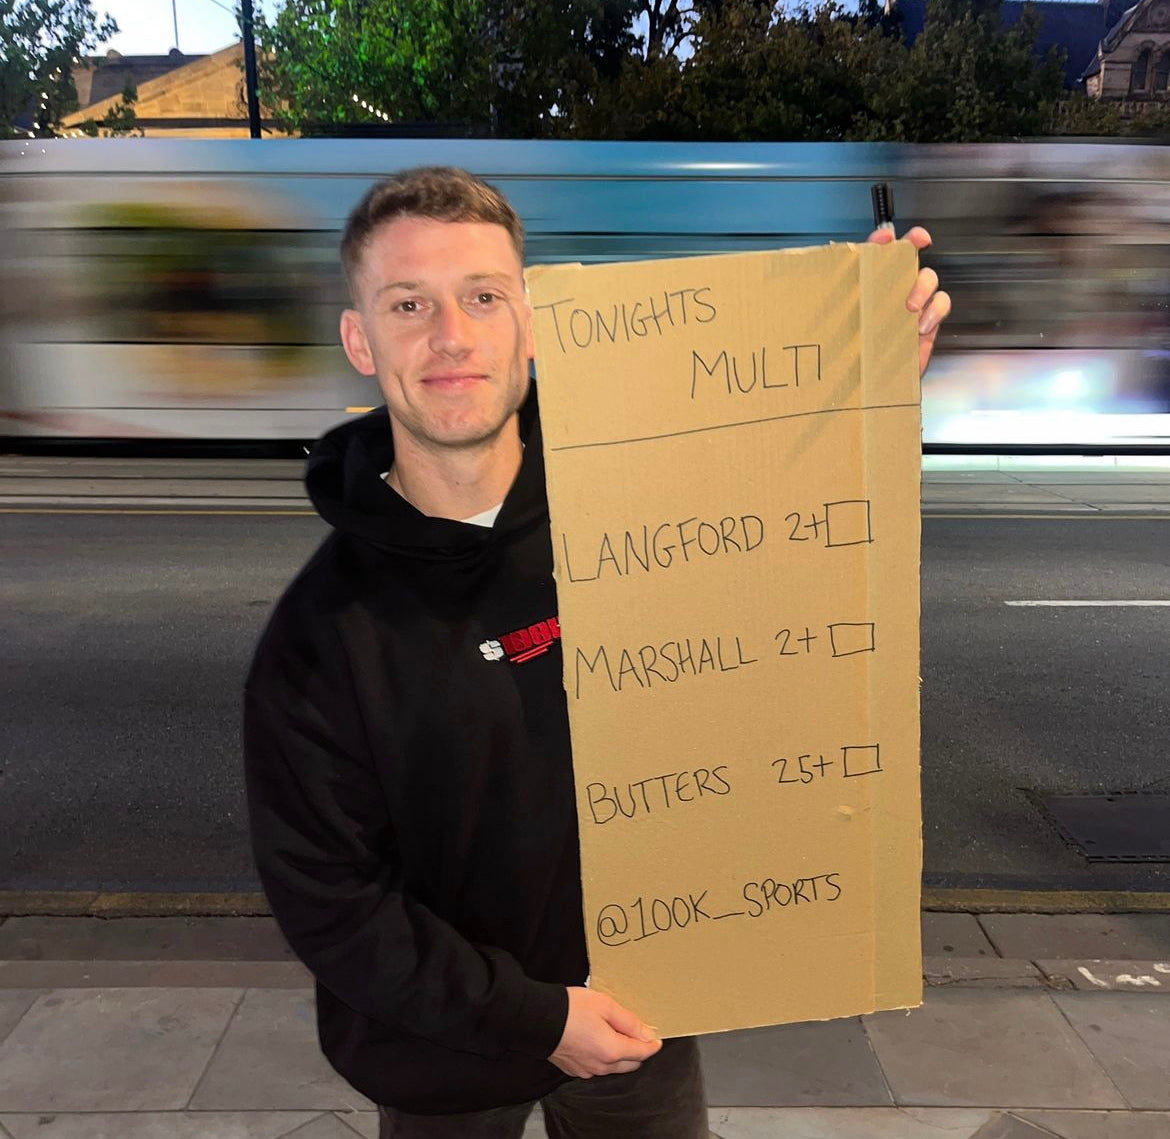 TONIGHTS
MULTI
LANGFORD 2+
MARSHALL 2+
BUTTERS 25+
@100K_SPORTS
$100K